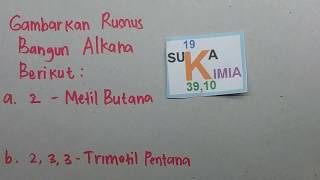 Gambarkan Rumus
Bangun Alkana
Berikut :
a. 2 - Metil Butana
19
SUKA
KIMIA
39,10
b. 2, 3, 3 - Trimetil Pentana